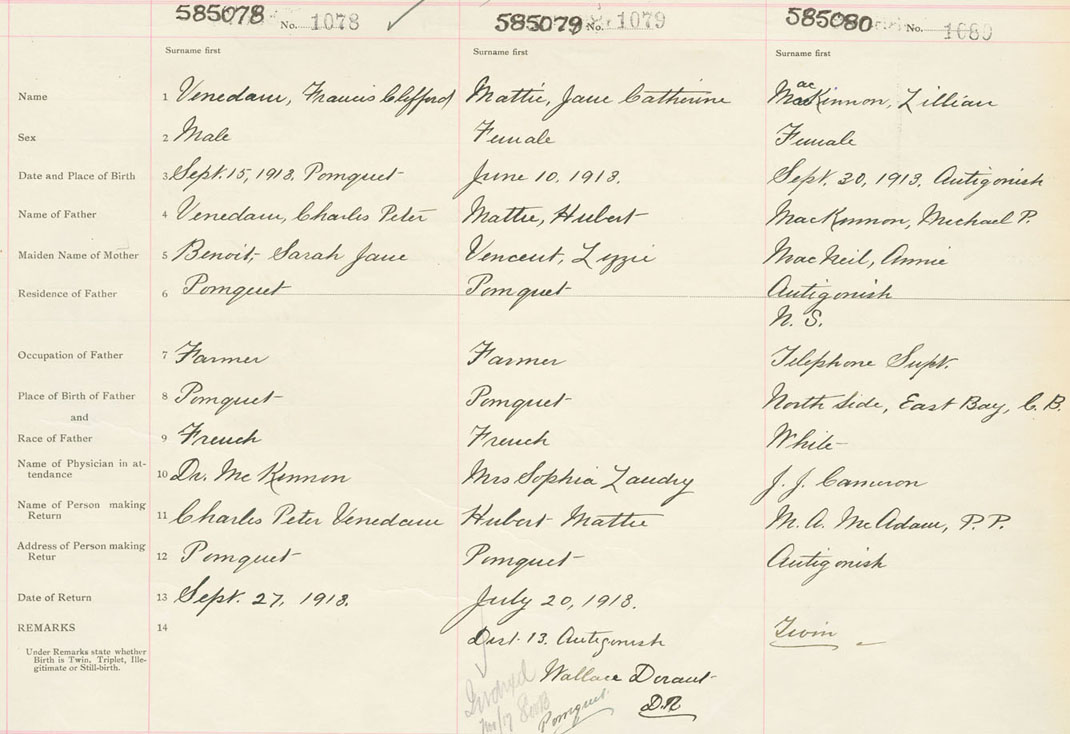 585078 No. 1078 585079 No. 1079 585080 No. 1080
Surname first Surname first Surname first
Name 1 Venedam, Francis Clifford Mattie, Jane Catherine MacKinnon, Lillian
Sex 2 Male Female Female
Date and Place of Birth 3 Sept. 15, 1913. Pomquet June 10, 1913. Sept. 30, 1913. Antigonish
Name of Father 4 Venedam, Charles Peter Mattie, Hubert MacKinnon, Michael P.
Maiden Name of Mother 5 Benoit, Sarah Jane Vencent, Lizzie MacNeil, Annie
Residence of Father 6 Pomquet Pomquet Antigonish
N. S.
Occupation of Father 7 Farmer Farmer Telephone Supt.
Place of Birth of Father 8 Pomquet Pomquet North Side, East Bay, C. B.
and
Race of Father 9 French French White
Name of Physician in at-
tendance 10 Dr. McKinnon Mrs Sophia Landry J. J. Cameron
Name of Person making
Return 11 Charles Peter Venedam Hubert Mattie M. A. McAdam, P. P.
Address of Person making
Retur 12 Pomquet Pomquet Antigonish
Date of Return 13 Sept. 27, 1913. July 20, 1913.
REMARKS 14 Dist. 13. Antigonish Twin
Under Remarks state whether
Birth is Twin, Triplet, Ille-
gitimate or Still-birth.
Wallace Dorant
Pomquet D.R